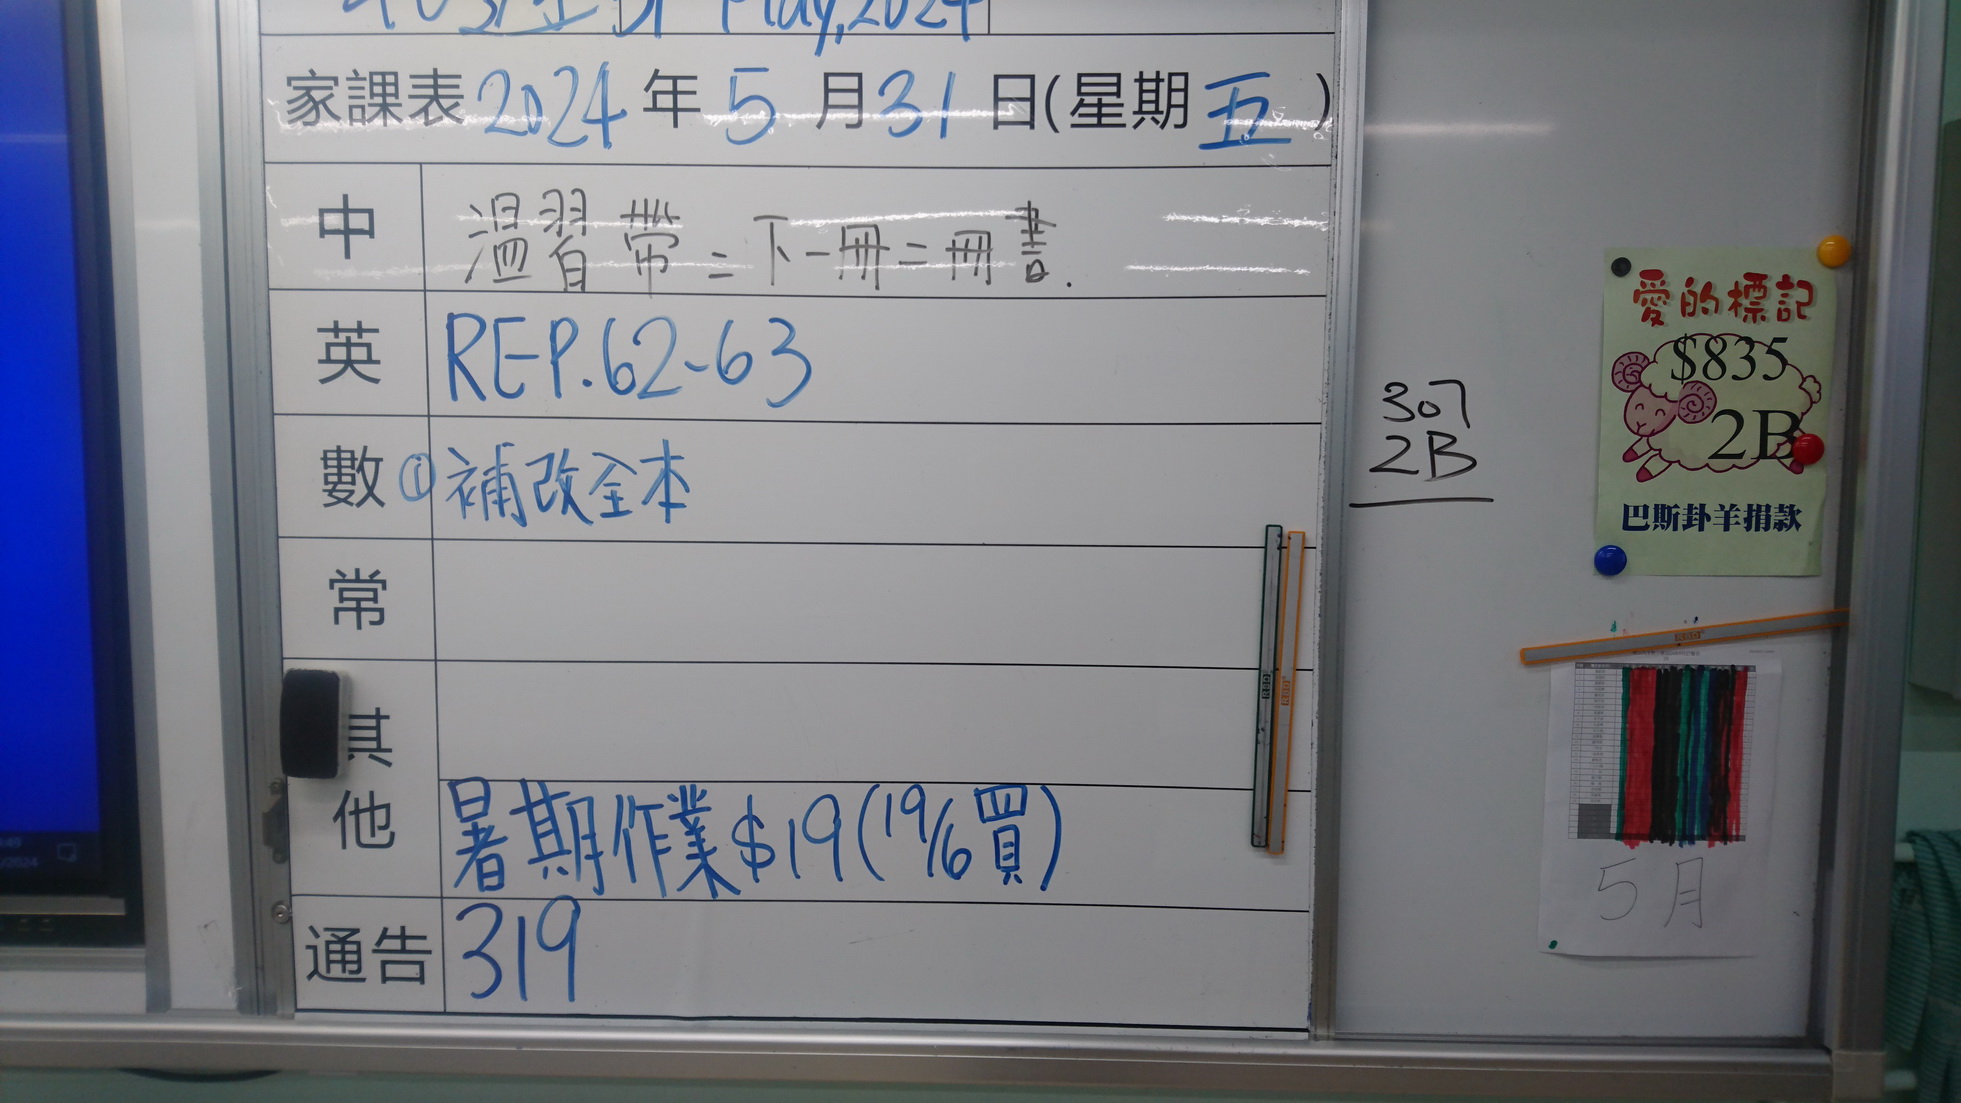 May,2024
家課表 2024 年 5 月 31 日(星期 五 )
中 溫習 帶二下一冊二冊書.
英 REP.62-63
數 ① 補改全本
常
其他
暑期作業$19(19/6買)
通告 319
307
2B
愛的標記
$835
2B
巴斯卦羊捐款
RED
RED
RED
5月